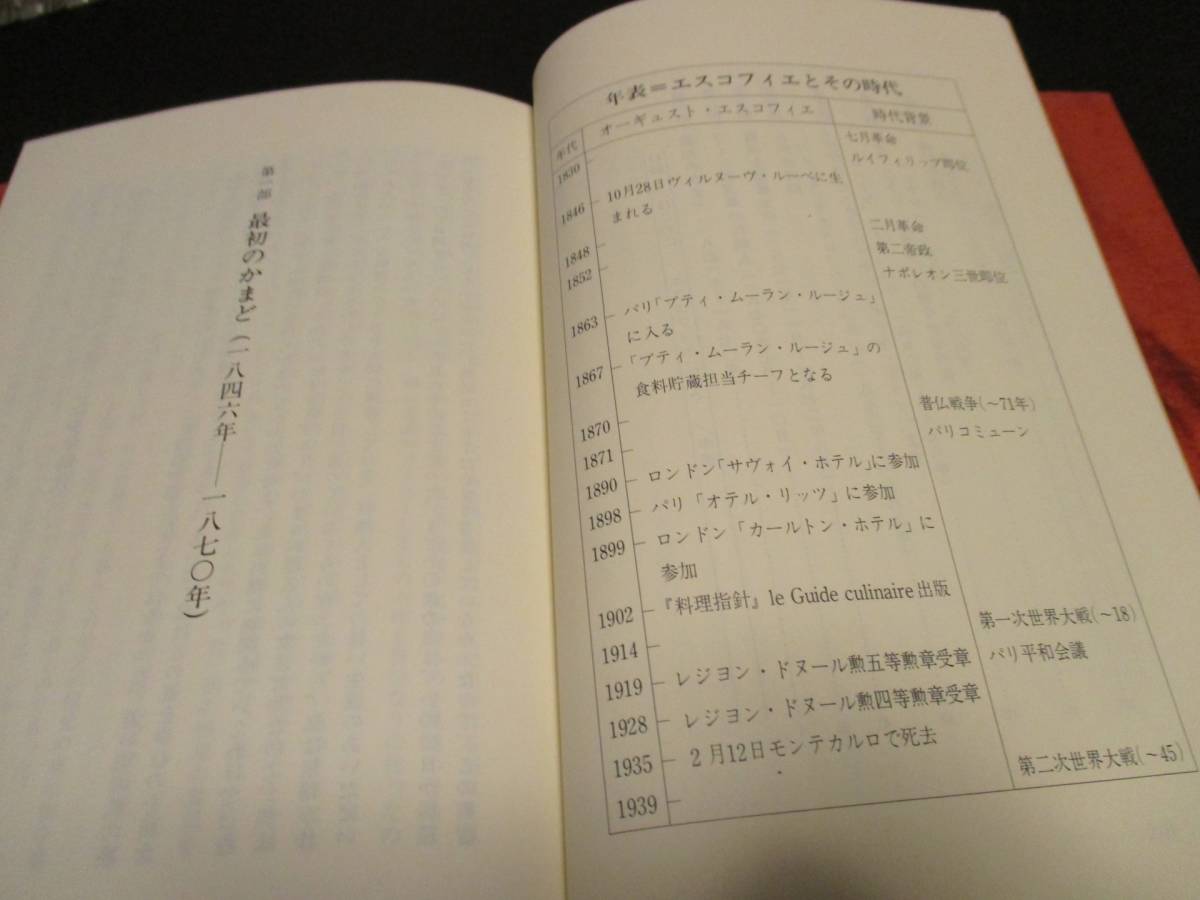 第一部 最初のかまど(一八四六年——一八七〇年)
年表=エスコフィエとその時代
年代 オーギュスト・エスコフィエ 時代背景
1830 七月革命
ルイフィリップ即位
1846 10月28日ヴィルヌーヴ・ルーベに生
まれる
1848 二月革命
1852 第二帝政
ナポレオン三世即位
1863 パリ「プティ・ムーラン・ルージュ」
に入る
1867 「プティ・ムーラン・ルージュ」の
食料貯蔵担当チーフとなる
1870 普仏戦争(~71年)
1871 パリコミューン
1890 ロンドン「サヴォイ・ホテル」に参加
1898 パリ「オテル・リッツ」に参加
1899 ロンドン「カールトン・ホテル」に
参加
1902 『料理指針』le Guide culinaire出版
1914 第一次世界大戦(~18)
1919 レジヨン・ドヌール勲五等勲章受章 パリ平和会議
1928 レジヨン・ドヌール勲四等勲章受章
1935 2月12日モンテカルロで死去
1939 第二次世界大戦(~45)